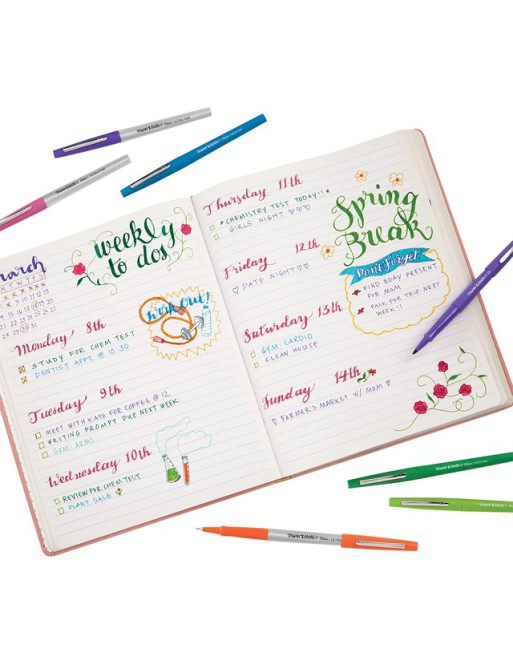 weekly
to dos
march
Work Out!
Monday, 8th
STUDY FOR CHEM TEST
DENTIST APPT. @ 10:30
Tuesday, 9th
MEET WITH KATE FOR COFFEE @ 12
WRITING PROMPT DUE NEXT WEEK
GYM: ARMS
Wednesday 10th
REVIEW FOR CHEM TEST
PLANT SALE
Thursday 11th
*CHEMISTRY TEST TODAY!!*
GIRLS NIGHT ♡♡♡
Friday, 12th
♡ DATE NIGHT ♡♡
Saturday 13th
GYM: CARDIO
CLEAN HOUSE
Sunday 14th
♡ FARMER'S MARKET W/ MOM ♡
Spring
Break
Don't Forget
FIND BDAY PRESENT
FOR MOM
PACK FOR TRIP NEXT
WEEK!!
Paper Mate
Paper Mate
Paper Mate
Paper Mate
Paper Mate
Paper Mate